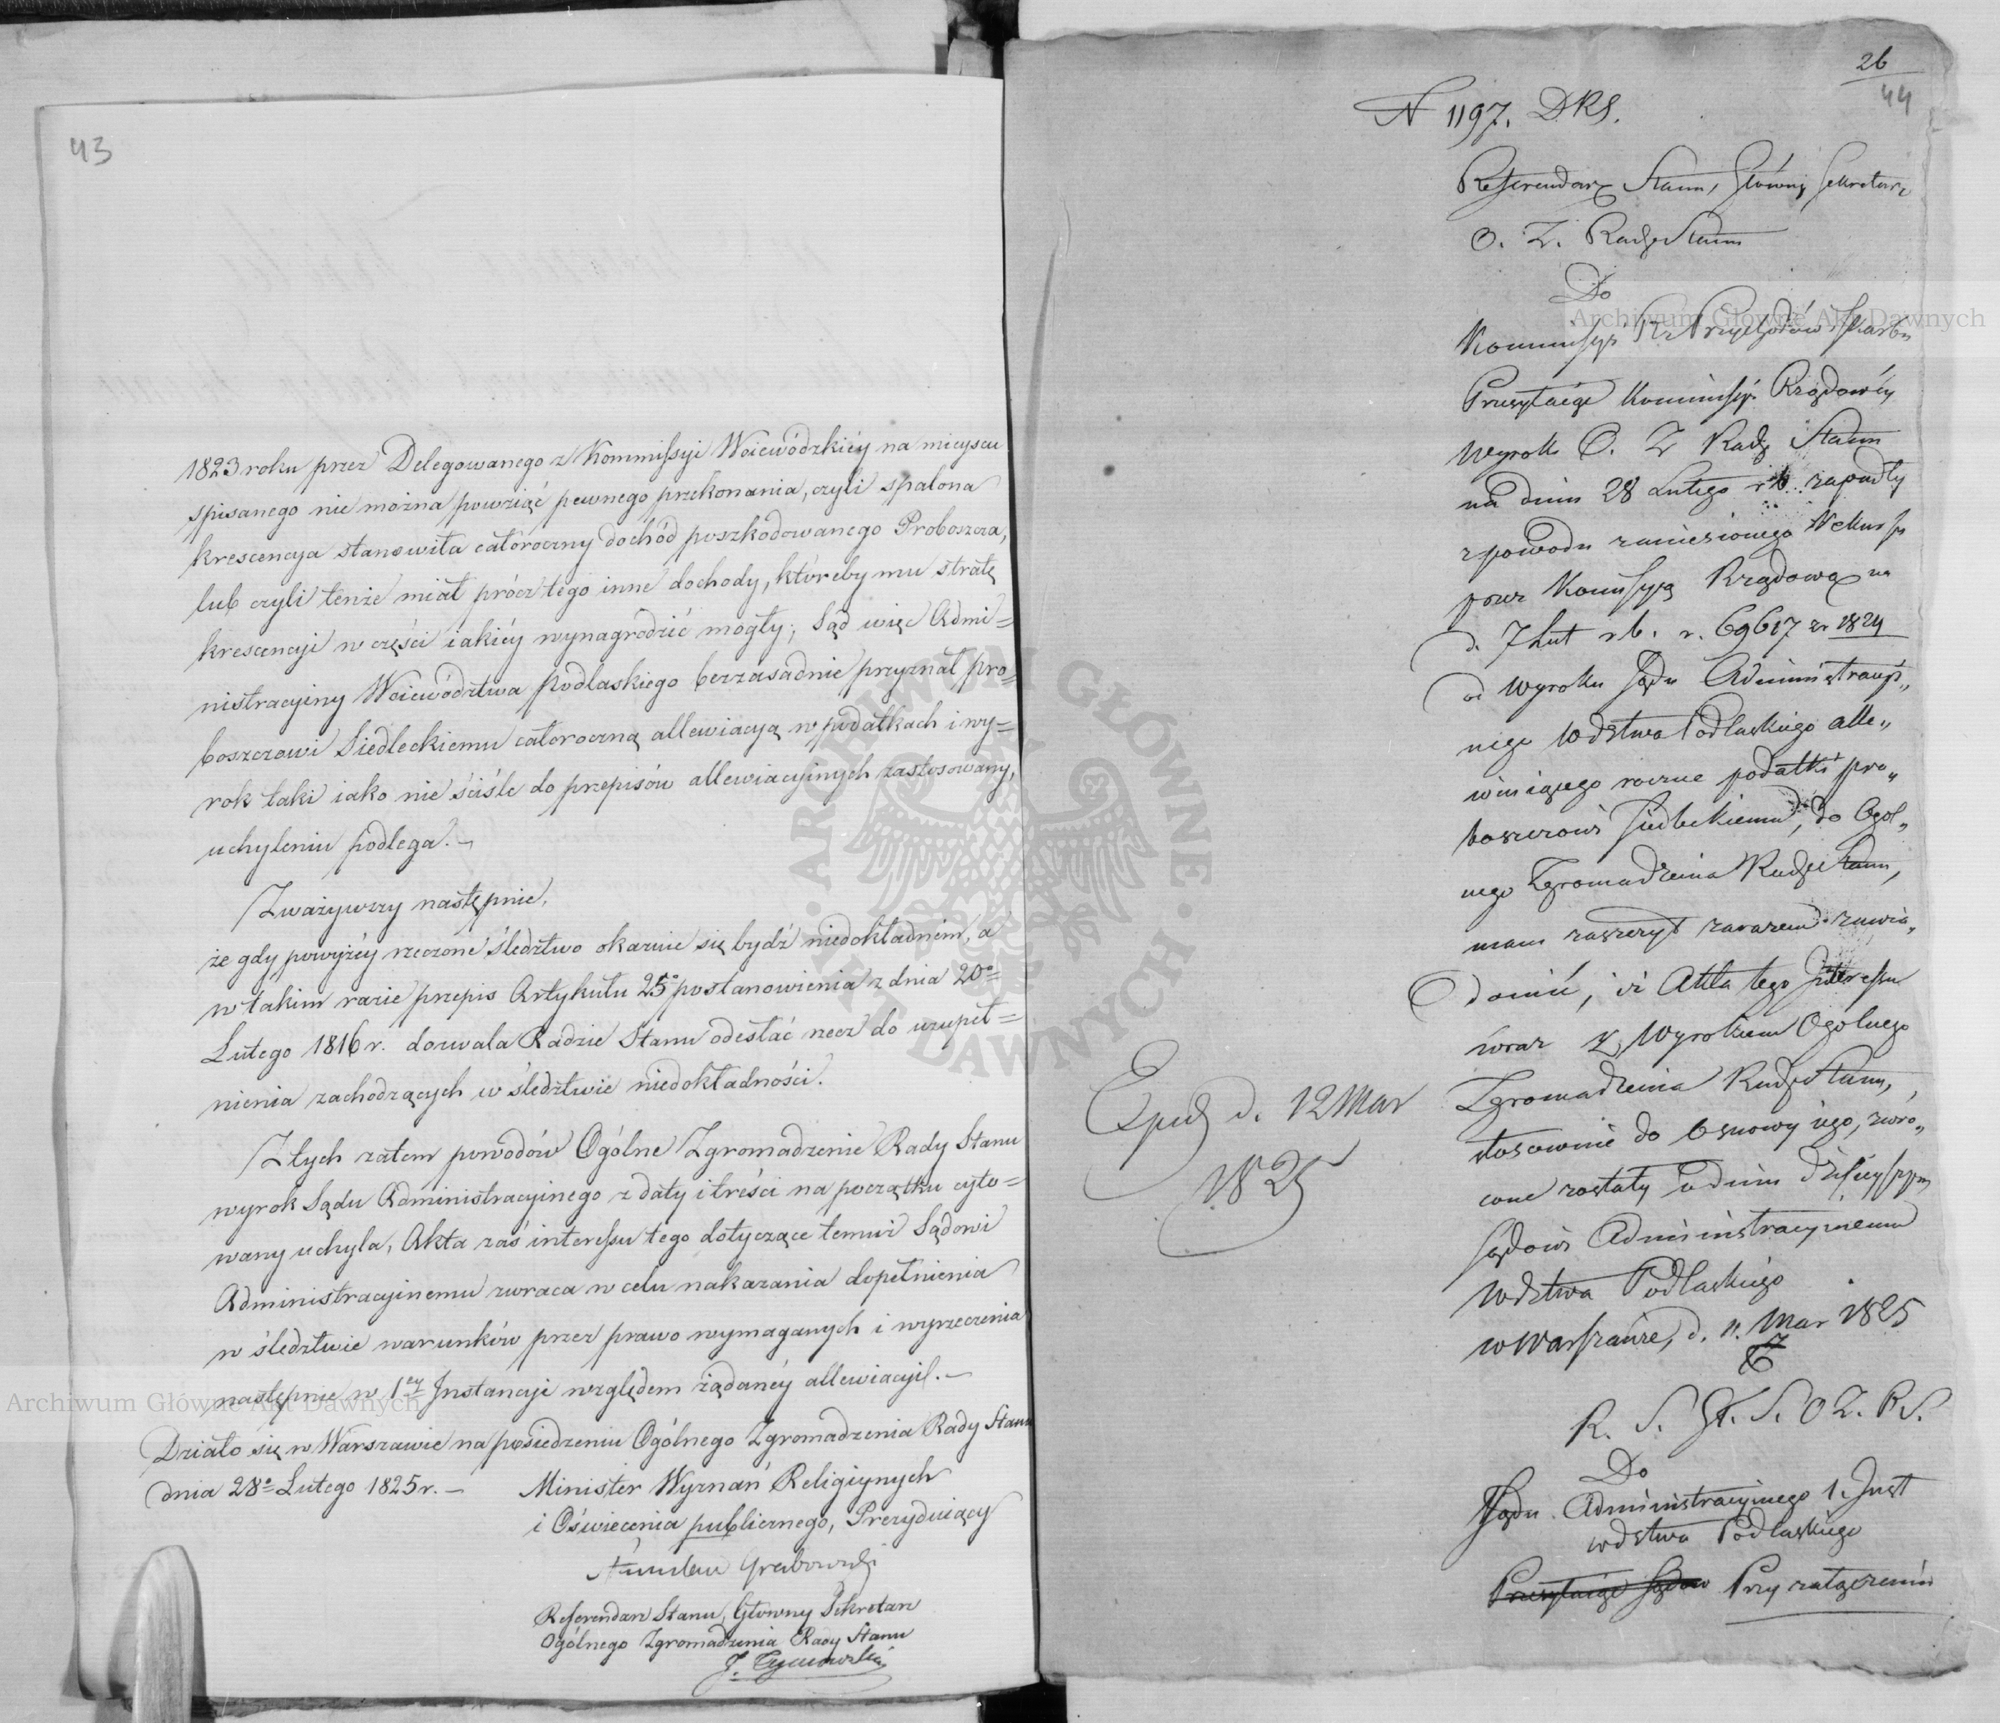 43
1823 roku przez Delegowanego z Kommissyi Woiewódzkiéy na mieyscu
spisanego nie można powziąć pewnego przekonania, czyli spalona
krescencya stanowiła całoroczny dochód poszkodowanego Proboszcza,
lub czyli tenże miał prócz tego inne dochody, któreby mu stratę
krescencyi w części iakiéy wynagrodzić mogły; Sąd więc Admi=
nistracyiny Woiewództwa Podlaskiego bezzasadnie przyznał pro=
boszczowi Siedleckiemu całoroczną allewiacyą w podatkach i wy=
rok taki iako nie ściśle do przepisów allewiacyinych zastosowany,
uchyleniu podlega. –
Zważywszy następnie,
że gdy powyżéy rzeczone śledztwo okazuie się bydź niedokładném, a
w takim razie przepis Artykułu 25º postanowienia z dnia 20º=
Lutego 1816 r. dozwala Radzie Stanu odesłać rzecz do uzupeł=
nienia zachodzących w śledztwie niedokładności.
Z tych zatem powodów Ogólne Zgromadzenie Rady Stanu
wyrok Sądu Administracyinego z daty i treści na początku cyto=
wany uchyla, Akta zaś interessu tego dotyczące temuż Sądowi
Administracyinemu zwraca w celu nakazania dopełnienia
w śledztwie warunków przez prawo wymaganych i wyrzeczenia
następnie w 1éy Instancyi względem żądanéy allewiacyi. –
Działo się w Warszawie na posiedzeniu Ogólnego Zgromadzenia Rady Stanu
dnia 28º= Lutego 1825 r. –
Minister Wyznań Religiynych
i Oświecenia publicznego, Prezyduiący
Stanisław Grabowski
Referendarz Stanu, Główny Sekretarz
Ogólnego Zgromadzenia Rady Stanu
J. Tymowski
26
44
N 1197. DKS.
Referendarz Stanu, Główny Sekretarz
O. Z. Rady Stanu
Do
Kommissyi Rz Przychodów i Skarbu
Przesyłaiąc Kommissyi Rządowéy
wyrok O. Z Rady Stanu
na dniu 28 Lutego r b. zapadły
z powodu zaniesionego Rekursu
przez Komissyą Rządową na
d. 7 Lut r b. n. 69617 zr 1824
od wyroku Sądu Administracyi„
nego Wdztwa Podlaskiego alle„
wiuiącego roczne podatki pro„
boszczowi Siedleckiemu, do Ogól„
nego Zgromadzenia Rady Stanu,
mam zaszczyt zarazem zawia„
domić, iż Akta tego Interessu
wraz z Wyrokiem Ogólnego
Zgromadzenia Rady Stanu,
stosownie do osnowy iego, zwró„
cone zostały w dniu dzisieyszym
Sądowi Administracyinemu
Wdztwa Podlaskiego
w Warszawie, d. 11. Mar 1825
Exped d. 12 Mar
1825
R. S. Gł. S. O Z. R S.
Do
Sądu Administracyinego 1. Inst
wdztwa Podlaskiego
Przesyłaiąc Sądow Przy załączeniu
Archiwum Główne Akt Dawnych
Archiwum Główne Akt Dawnych
ARCHIWUM GŁÓWNE AKT DAWNYCH